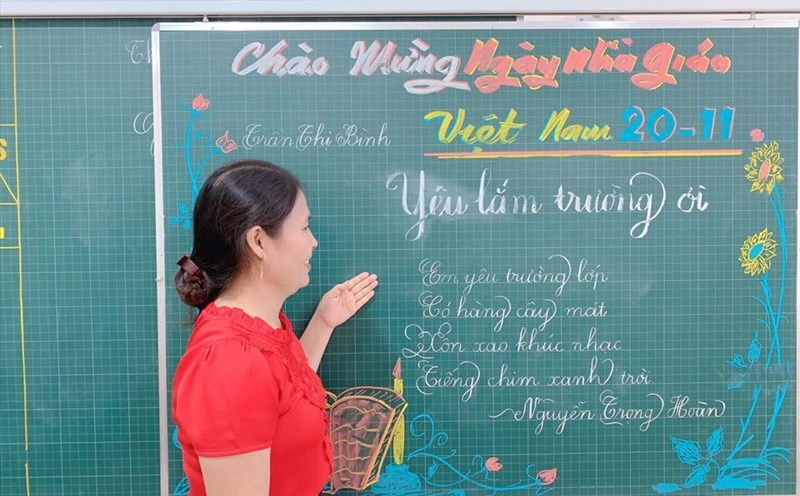 Chào Mừng Ngày Nhà giáo
Việt Nam 20-11
Trần Thị Bình
Yêu lắm trường ơi
Em yêu trường lớp
Có hàng cây mát
Xôn xao khúc nhạc
Tiếng chim xanh trời
~Nguyễn Trọng Hoàn